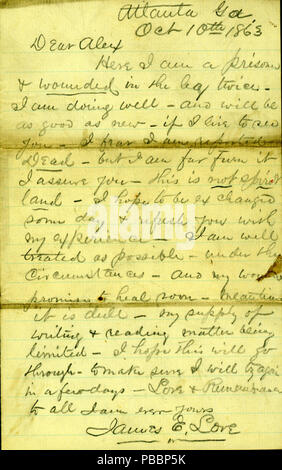 Atlanta Ga,
Oct 10th 1863
Dear Alex
Here I am a prisoner
& wounded in the leg twice -
I am doing well - and will be
as good as new - if I live to see
you - I hear I am reported
Dead - but I am far from it
I assure you - this is not spirit
land - I hope to be exchanged
some day & refresh you with
my experience - I am well
treated as possible - under the
circumstances - and my wound
promises to heal soon - meantime
it is dull - my supply of
writing & reading matter being
limited - I hope this will go
through - to make sure I will try again
in a few days - Love & Remembrance
to all I am ever yours
James E. Love
alamy
Image ID: PBBP5K
www.alamy.com